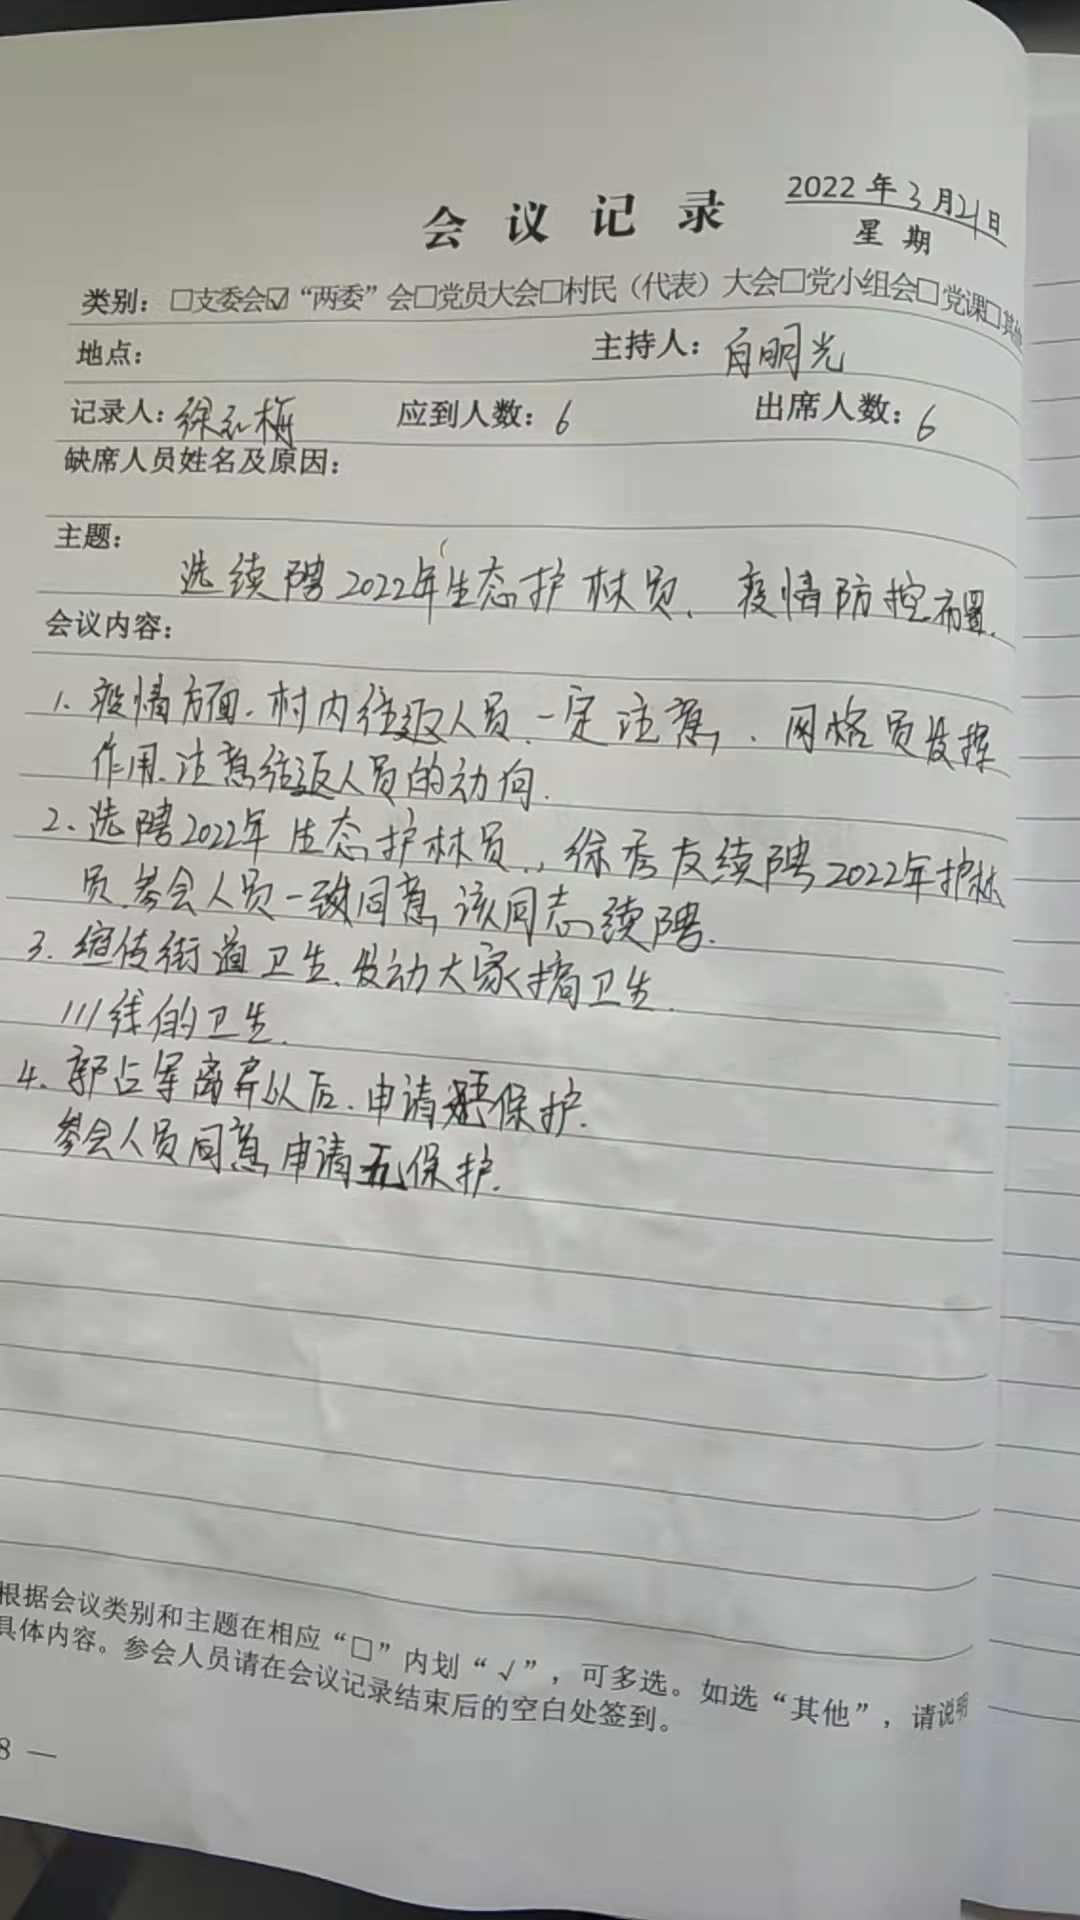 会议记录
2022年3月21日
星期
类别：□支委会☑“两委”会□党员大会□村民（代表）大会□党小组会□党课□其他
地点： 主持人：肖明光
记录人：徐红梅 应到人数：6 出席人数：6
缺席人员姓名及原因：
主题：
选续聘2022年生态护林员、疫情防控布置.
会议内容：
1、疫情方面.村内往返人员.一定注意，、网格员发挥
作用.注意往返人员的动向.
2、选聘2022年生态护林员，徐秀友续聘2022年护林
员.参会人员一致同意该同志续聘.
3、宣传街道卫生、发动大家搞卫生.
111线的卫生.
4、郭占军离弃以后.申请 保护.
参会人员同意申请五保护.
根据会议类别和主题在相应“□”内划“√”，可多选。如选“其他”，请说明
具体内容。参会人员请在会议记录结束后的空白处签到。
8 —